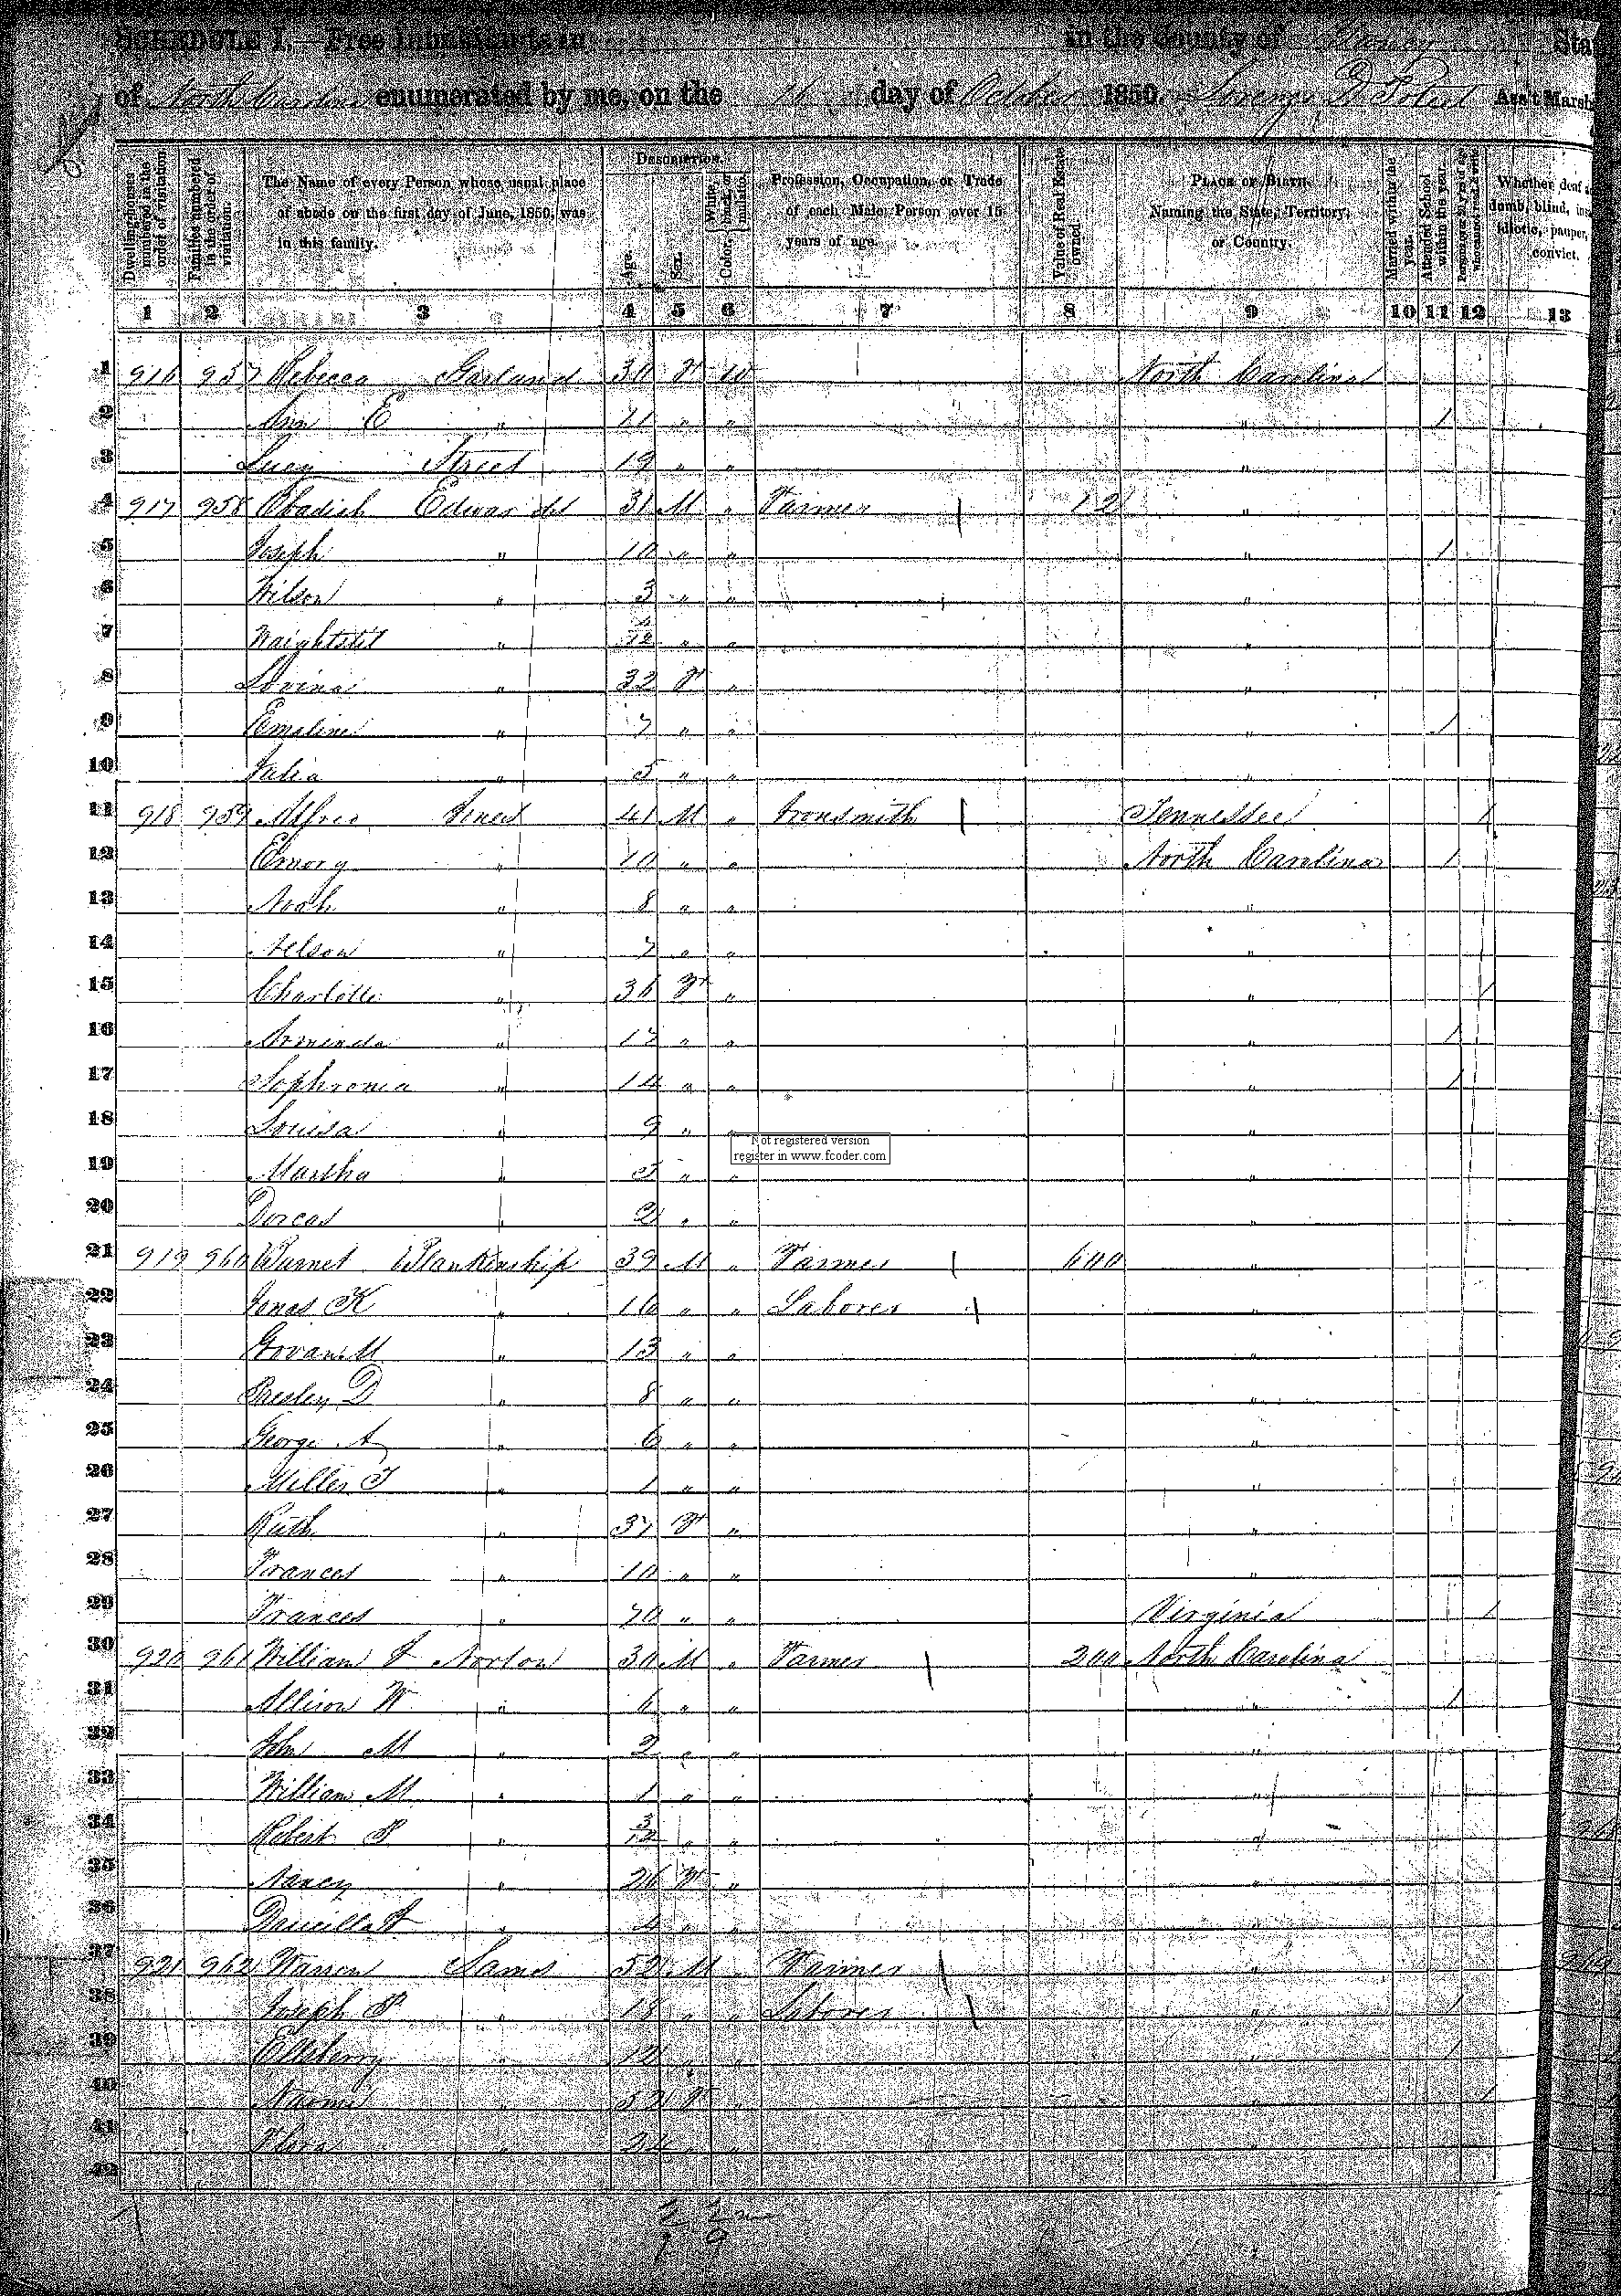 SCHEDULE I.—Free Inhabitants in in the County of Yancey State
of North Carolina enumerated by me, on the 16 day of October 1850. Lorenzo D Ass't Marsh
Dwelling-houses numbered in the order of visitation.
Families numbered in the order of visitation.
The Name of every Person whose usual place of abode on the first day of June, 1850, was in this family.
Description.
Age.
Sex.
Color, White, black, or mulatto.
Profession, Occupation, or Trade of each Male Person over 15 years of age.
Value of Real Estate owned.
Place of Birth. Naming the State, Territory, or Country.
Married within the year.
Attended School within the year.
Persons over 20 y'rs of age who cannot read & write.
Whether deaf a dumb, blind, ins idiotic, pauper, convict.
1 2 3 4 5 6 7 8 9 10 11 12 13
1 916 957 Rebecca Garland 30 F W North Carolina
2 Ann E " 11 " " " 1
3 Lucy Street 19 " " "
4 917 958 Obadiah Edwards 31 M " Farmer 12 "
5 Joseph " 10 " " " 1
6 Wilson " 3 " " "
7 Waightstil " 4/12 " " "
8 Lovina " 32 F " "
9 Emaline " 7 " " " 1
10 Julia " 5 " " "
11 918 959 Alfred Jones 41 M " Ironsmith Tennessee 1
12 Emory " 10 " " North Carolina 1
13 Noah " 8 " " "
14 Nelson " 7 " " "
15 Charlotte " 36 F " " 1
16 Arminda " 17 " " " 1
17 Sophronia " 14 " " " 1
18 Louisa " 9 " " "
Not registered version
register in www.fcoder.com
19 Martha " 5 " " "
20 Dorcas " 2 " " "
21 919 960 Burnet Blankinship 39 M " Farmer 600 "
22 Jonas K " 16 " " Laborer "
23 Govan M " 13 " " "
24 Presley D " 8 " " "
25 George A " 6 " " "
26 Miller T " 1 " " "
27 Ruth " 37 F " "
28 Frances " 10 " " "
29 Frances " 70 " " Virginia 1
30 920 961 William F Norton 30 M " Farmer 200 North Carolina
31 Allison W " 6 " " " 1
32 John M " 2 " " "
33 William M " 1 " " "
34 Robert P " 3/12 " " "
35 Nancy " 26 F " "
36 Drucilla F " 4 " " "
37 921 962 Warren Sams 52 M " Farmer "
38 Joseph P " 18 " " Laborer " 1
39 Ellsberry " 12 " " " 1
40 Naomi " 52 F " " 1
41 " 24 " " "
42